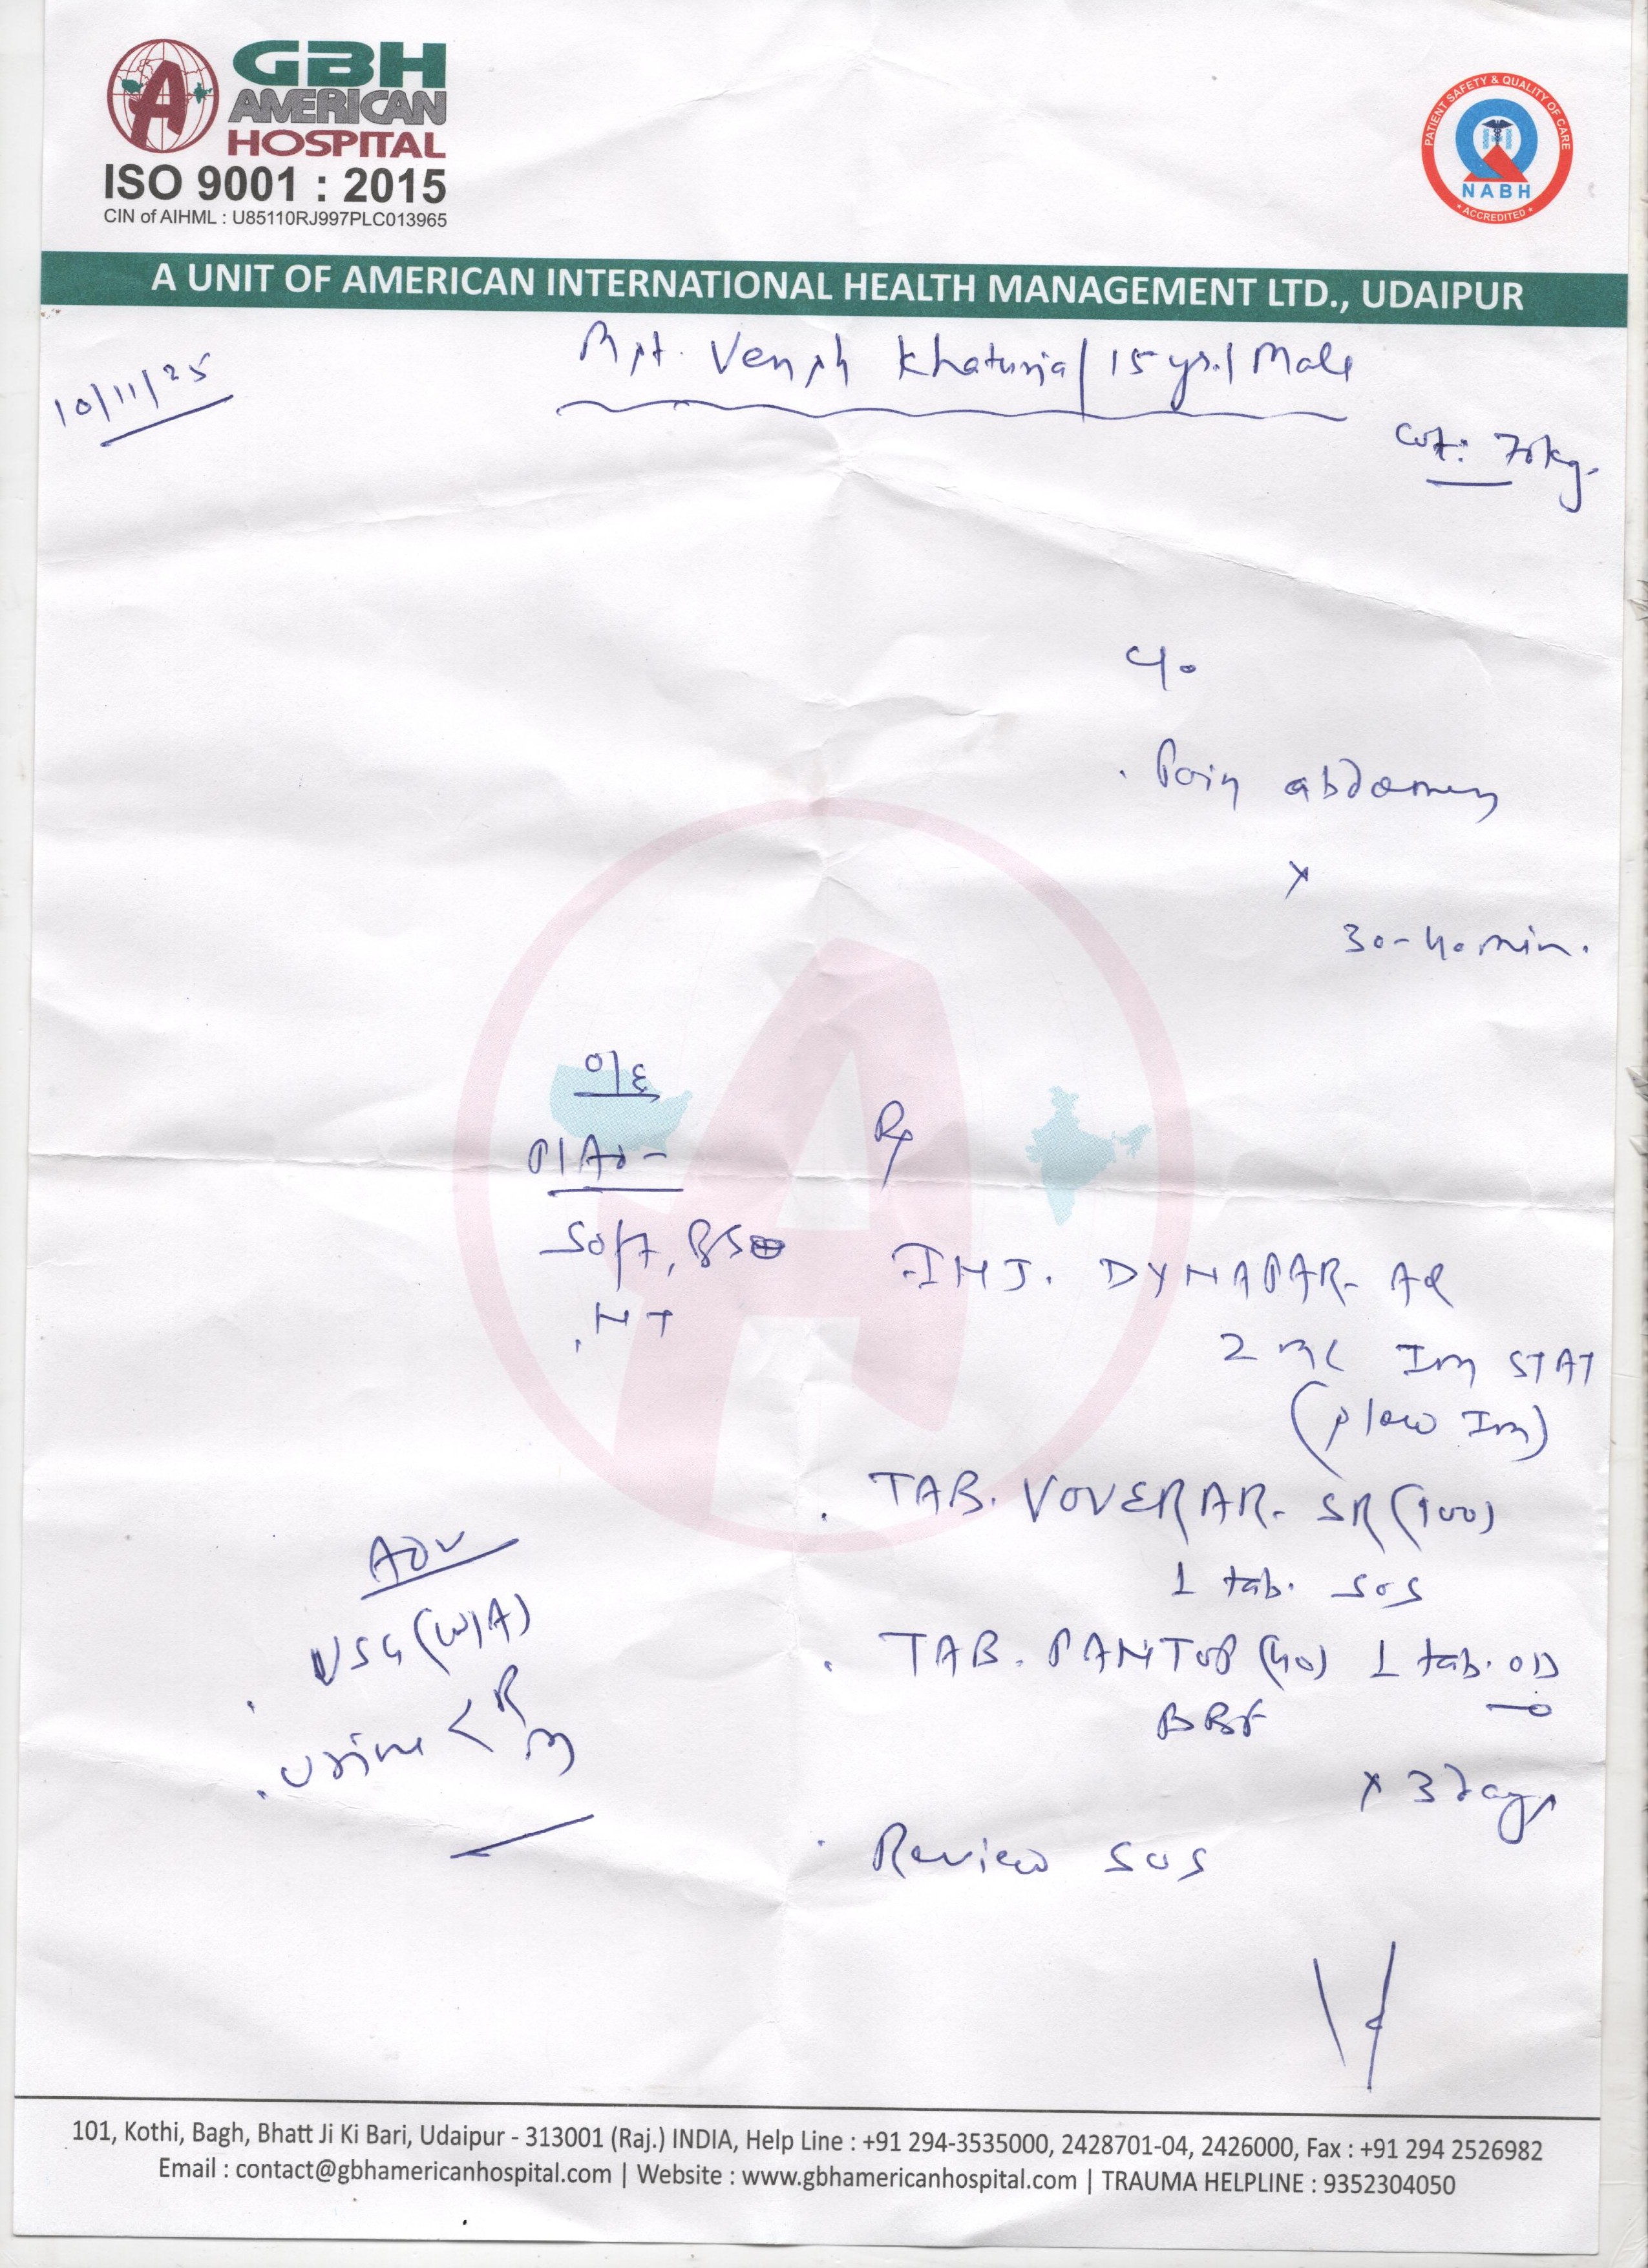 GBH
AMERICAN
HOSPITAL
ISO 9001 : 2015
CIN of AIHML : U85110RJ997PLC013965
PATIENT SAFETY & QUALITY OF CARE
NABH
• ACCREDITED •
A UNIT OF AMERICAN INTERNATIONAL HEALTH MANAGEMENT LTD., UDAIPUR
10/11/25
Khaturia/15 yrs./Male
wt: 70kg.
c/o
. Pain abdomen
x
30-40 min.
O/E
P/Ad-
Soft, BS⊕
. NT
Rx
. INJ. DYNAPAR- AQ
2 ml Im STAT
(slow Im)
. TAB. VOVERAR- SR (100)
1 tab. sos
. TAB. PANTOP (40) 1 tab. OD
BBF
x 3 days
. Review SOS
ADV
. USG (W/A)
. Urine < R
M
101, Kothi, Bagh, Bhatt Ji Ki Bari, Udaipur - 313001 (Raj.) INDIA, Help Line : +91 294-3535000, 2428701-04, 2426000, Fax : +91 294 2526982
Email : contact@gbhamericanhospital.com | Website : www.gbhamericanhospital.com | TRAUMA HELPLINE : 9352304050